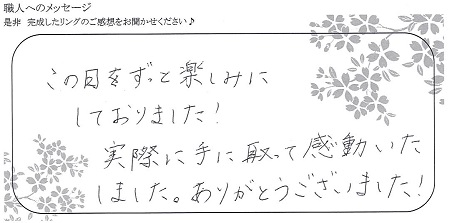 職人へのメッセージ
是非 完成したリングのご感想をお聞かせください♪
この日をずっと楽しみに
しておりました！
実際に手に取って感動いた
しました。ありがとうございました！